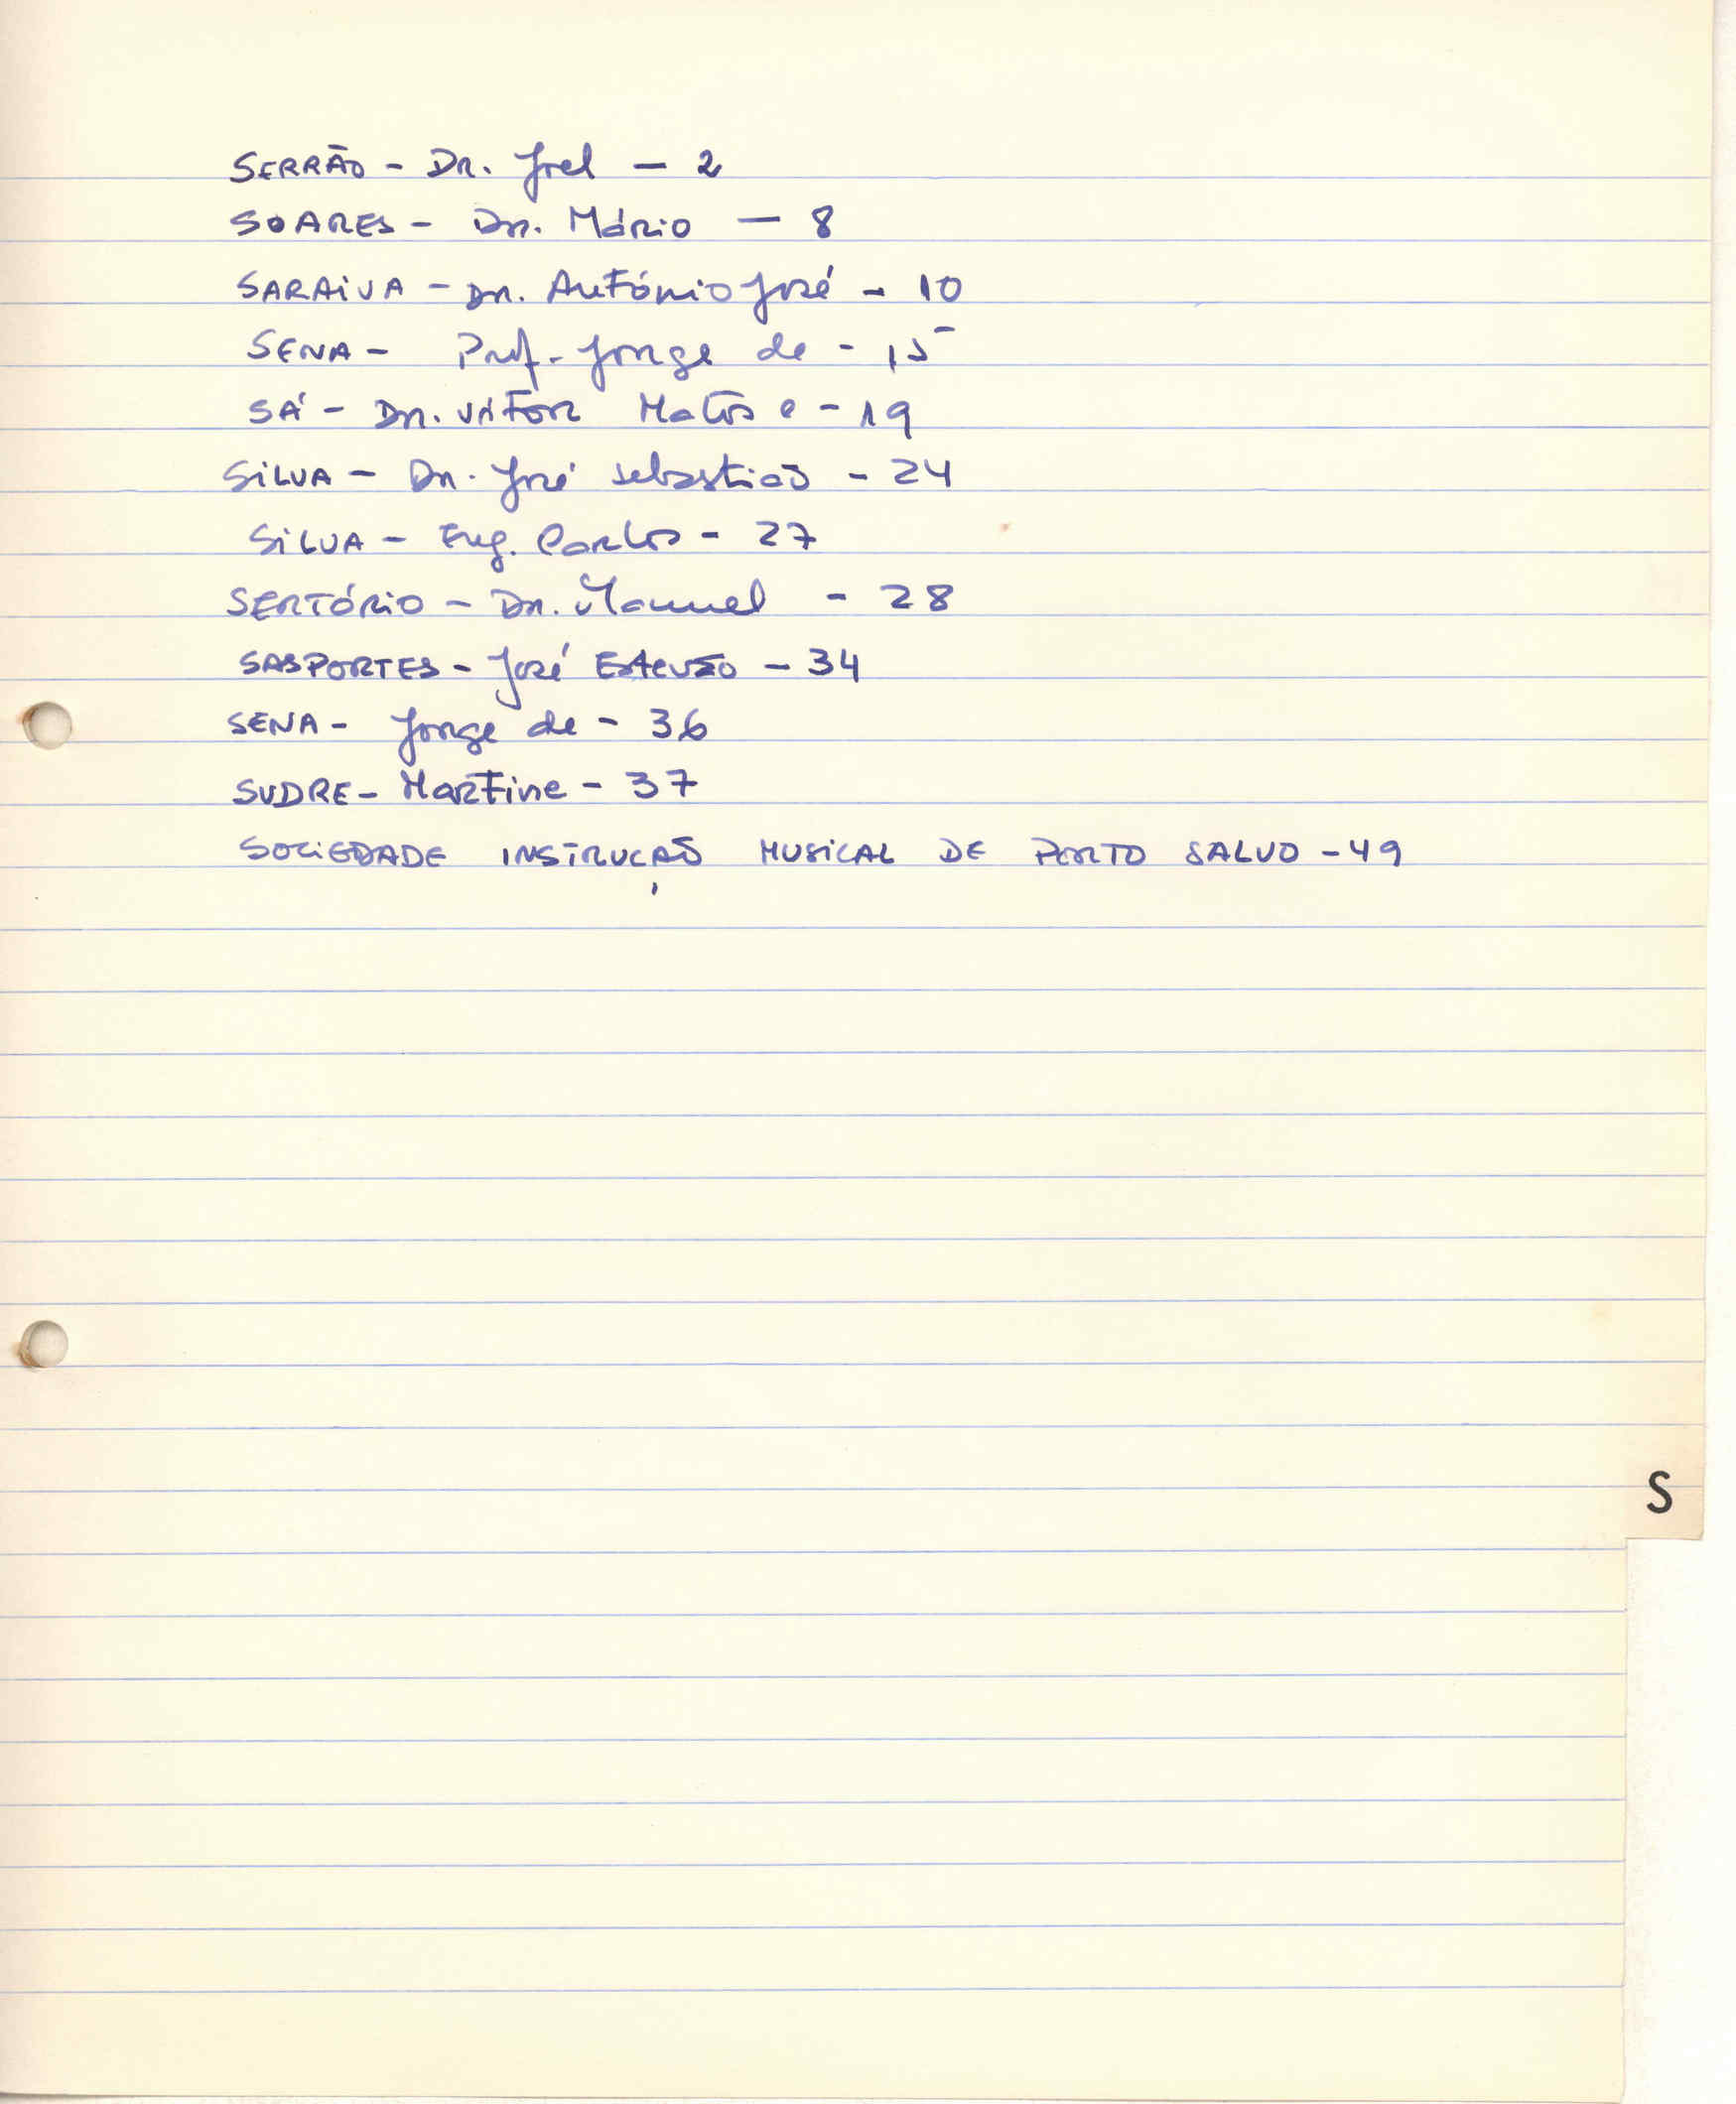 SERRÃO - Dr. Joel - 2
SOARES - Dr. Mário - 8
SARAIVA - Dr. António José - 10
SENA - Prof. Jorge de - 15
SÁ - Dr. Vítor Matos e - 19
SILVA - Dr. José Sebastião - 24
SILVA - Eng. Carlos - 27
SERTÓRIO - Dr. Manuel - 28
SASPORTES - José Estevão - 34
SENA - Jorge de - 36
SUDRE - Martine - 37
SOCIEDADE INSTRUÇÃO MUSICAL DE PORTO SALVO - 49
S